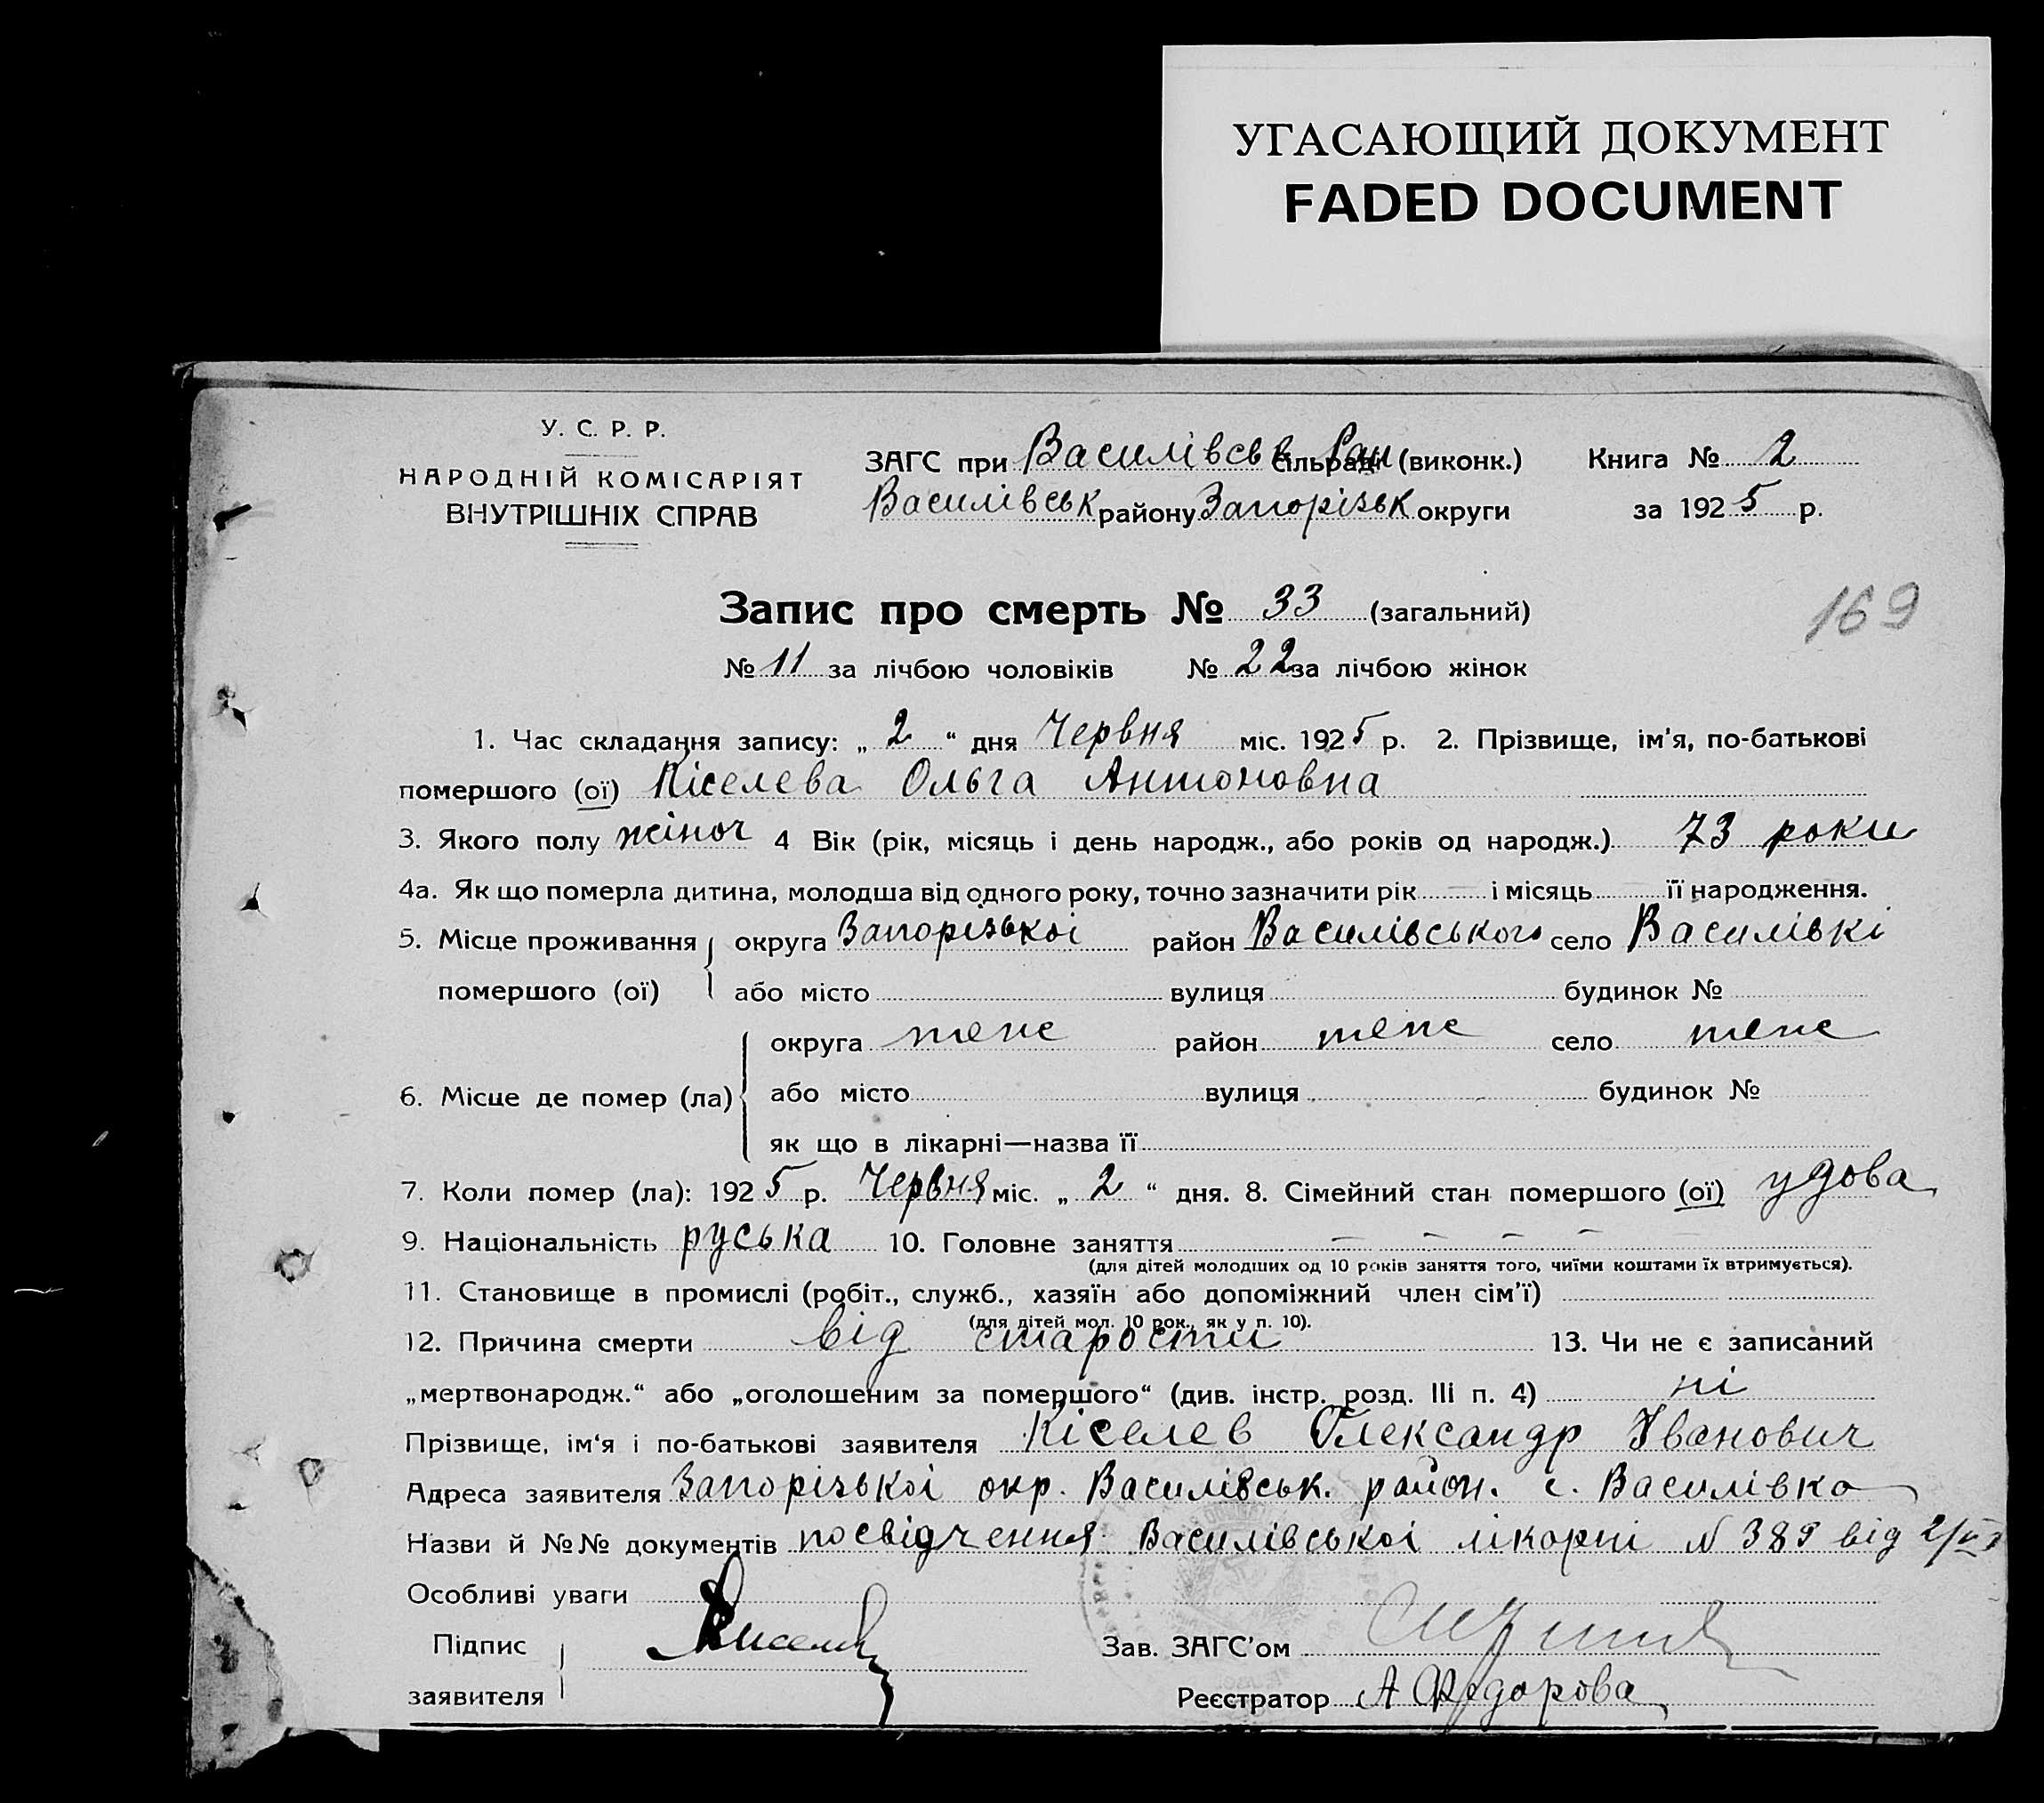 УГАСАЮЩИЙ ДОКУМЕНТ
FADED DOCUMENT
У. С. Р. Р.
НАРОДНІЙ КОМІСАРІЯТ
ВНУТРІШНІХ СПРАВ
ЗАГС при Василівськ Рай сільраді (виконк.) Книга № 2
Василівськ району Запорізьк округи за 1925 р.
Запис про смерть № 33 (загальний)
169
№ 11 за лічбою чоловіків № 22 за лічбою жінок
1. Час складання запису: „ 2 “ дня Червня міс. 1925 р. 2. Прізвище, ім'я, по-батькові
помершого (ої) Кіселева Ольга Антоновна
3. Якого полу жіноч 4 Вік (рік, місяць і день народж., або років од народж.) 73 роки
4а. Як що померла дитина, молодша від одного року, точно зазначити рік — і місяць — її народження.
5. Місце проживання округа Запорізькоі район Василівського село Василівкі
помершого (ої) або місто вулиця будинок №
округа теж район теж село теж
6. Місце де помер (ла) або місто вулиця будинок №
як що в лікарні—назва її
7. Коли помер (ла): 1925 р. Червня міс. „ 2 “ дня. 8. Сімейний стан помершого (ої) удова
9. Національність руська 10. Головне заняття — — — — —
(для дітей молодших од 10 років заняття того, чиїми коштами їх втримується).
11. Становище в промислі (робіт., служб., хазяїн або допоміжний член сім'ї)
(для дітей мол. 10 рок., як у п. 10).
12. Причина смерти від старости 13. Чи не є записаний
„мертвонародж.“ або „оголошеним за помершого“ (див. інстр. розд. III п. 4) ні
Прізвище, ім‘я і по-батькові заявителя Кіселев Олександр Іванович
Адреса заявителя Запорізькоі окр. Василівськ. район. с. Василівка
Назви й №№ документів посвідчення Василівськоі лікарні N 389 від 2/VI
Особливі уваги
Підпис
заявителя
Зав. ЗАГС'ом
Реєстратор А Федорова